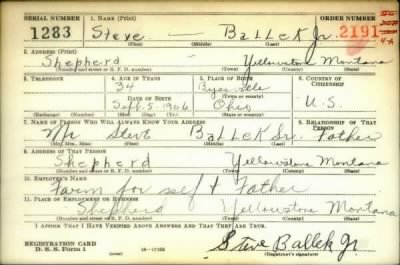 SERIAL NUMBER 1. NAME (Print) ORDER NUMBER
1283 Steve — Ballek Jr. 2191
(First) (Middle) (Last)
2. ADDRESS (Print)
Shepherd Yellowstone Montana
(Number and street or R. F. D. number) (Town) (County) (State)
3. TELEPHONE 4. AGE IN YEARS 5. PLACE OF BIRTH 6. COUNTRY OF CITIZENSHIP
34
DATE OF BIRTH (Town or county)
Sept. 5 - 1906 Ohio U.S.
(Exchange) (No.) (Mo.) (Day) (Yr.) (State or country)
7. NAME OF PERSON WHO WILL ALWAYS KNOW YOUR ADDRESS 8. RELATIONSHIP OF THAT PERSON
Mr Steve Ballek Sr. Father
(Mr., Mrs., Miss) (First) (Middle) (Last)
9. ADDRESS OF THAT PERSON
Shepherd Yellowstone Montana
(Number and street or R. F. D. number) (Town) (County) (State)
10. EMPLOYER'S NAME
Farm for self & Father
11. PLACE OF EMPLOYMENT OR BUSINESS
Shepherd Yellowstone Montana
(Number and street or R. F. D. number) (Town) (County) (State)
I AFFIRM THAT I HAVE VERIFIED ABOVE ANSWERS AND THAT THEY ARE TRUE.
REGISTRATION CARD
D. S. S. Form 1 16—17105 Steve Ballek Jr
(Registrant's signature)